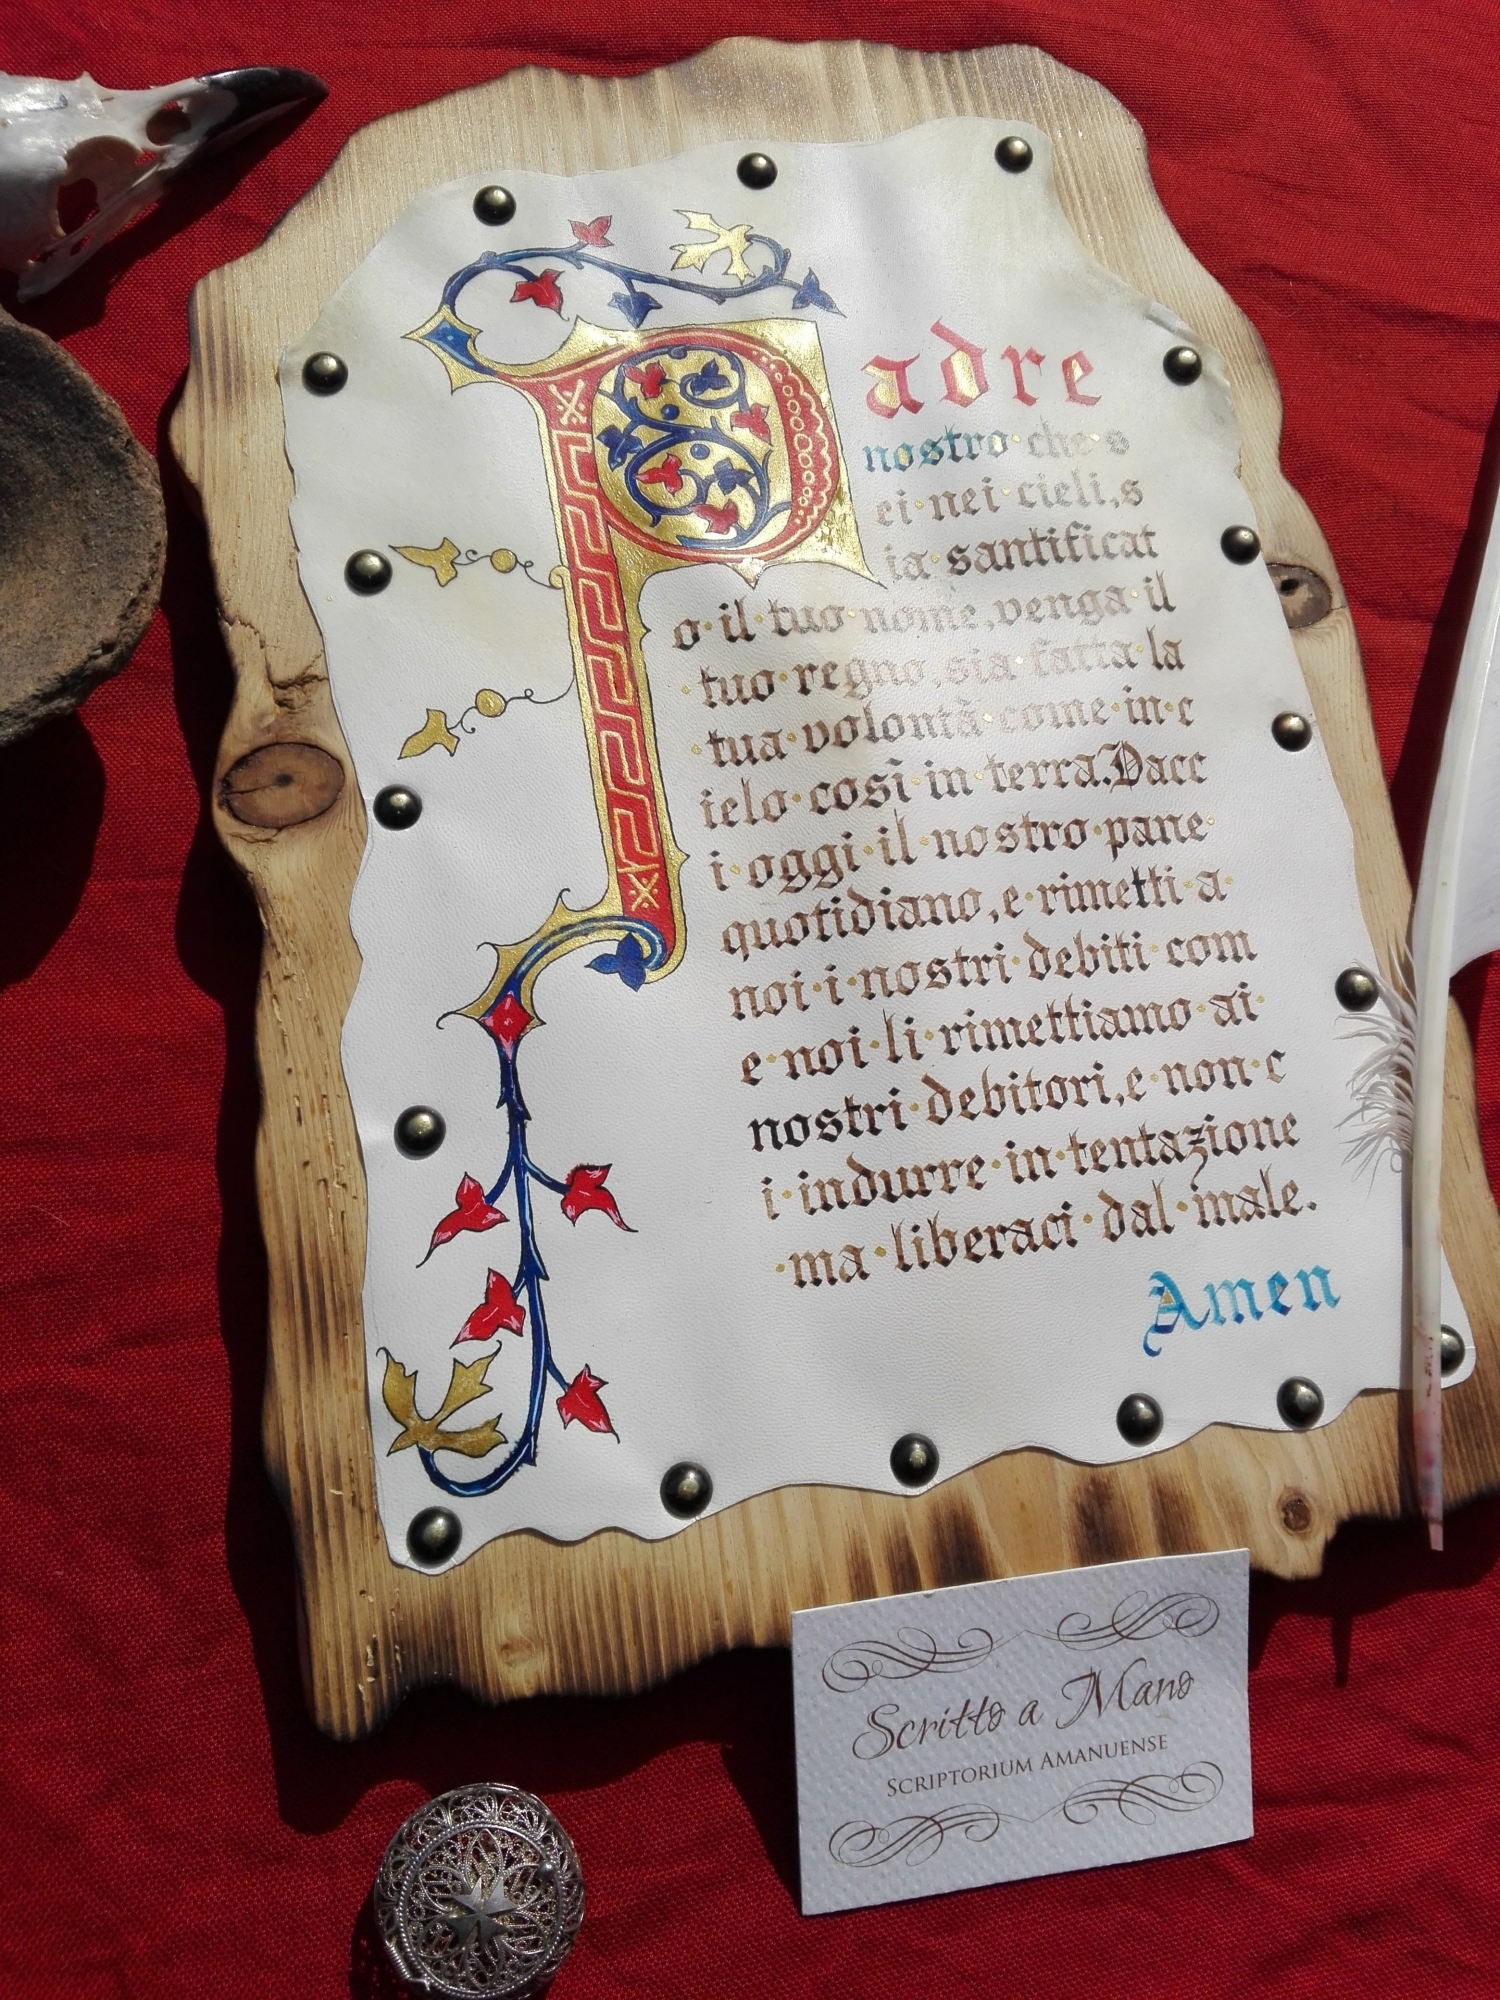 Padre
nostro·che·s
ei·nei·cieli,s
ia·santificat
o·il·tuo·nome,venga·il
·tuo·regno,sia·fatta·la
·tua·volontà·come·in·c
ielo·così·in·terra.Dacc
i·oggi·il·nostro·pane·
quotidiano,e·rimetti·a·
noi·i·nostri·debiti·com
e·noi·li·rimettiamo·ai·
nostri·debitori,e·non·c
i·indurre·in·tentazione
·ma·liberaci·dal·male.
Amen
Scritto a Mano
SCRIPTORIUM AMANUENSE